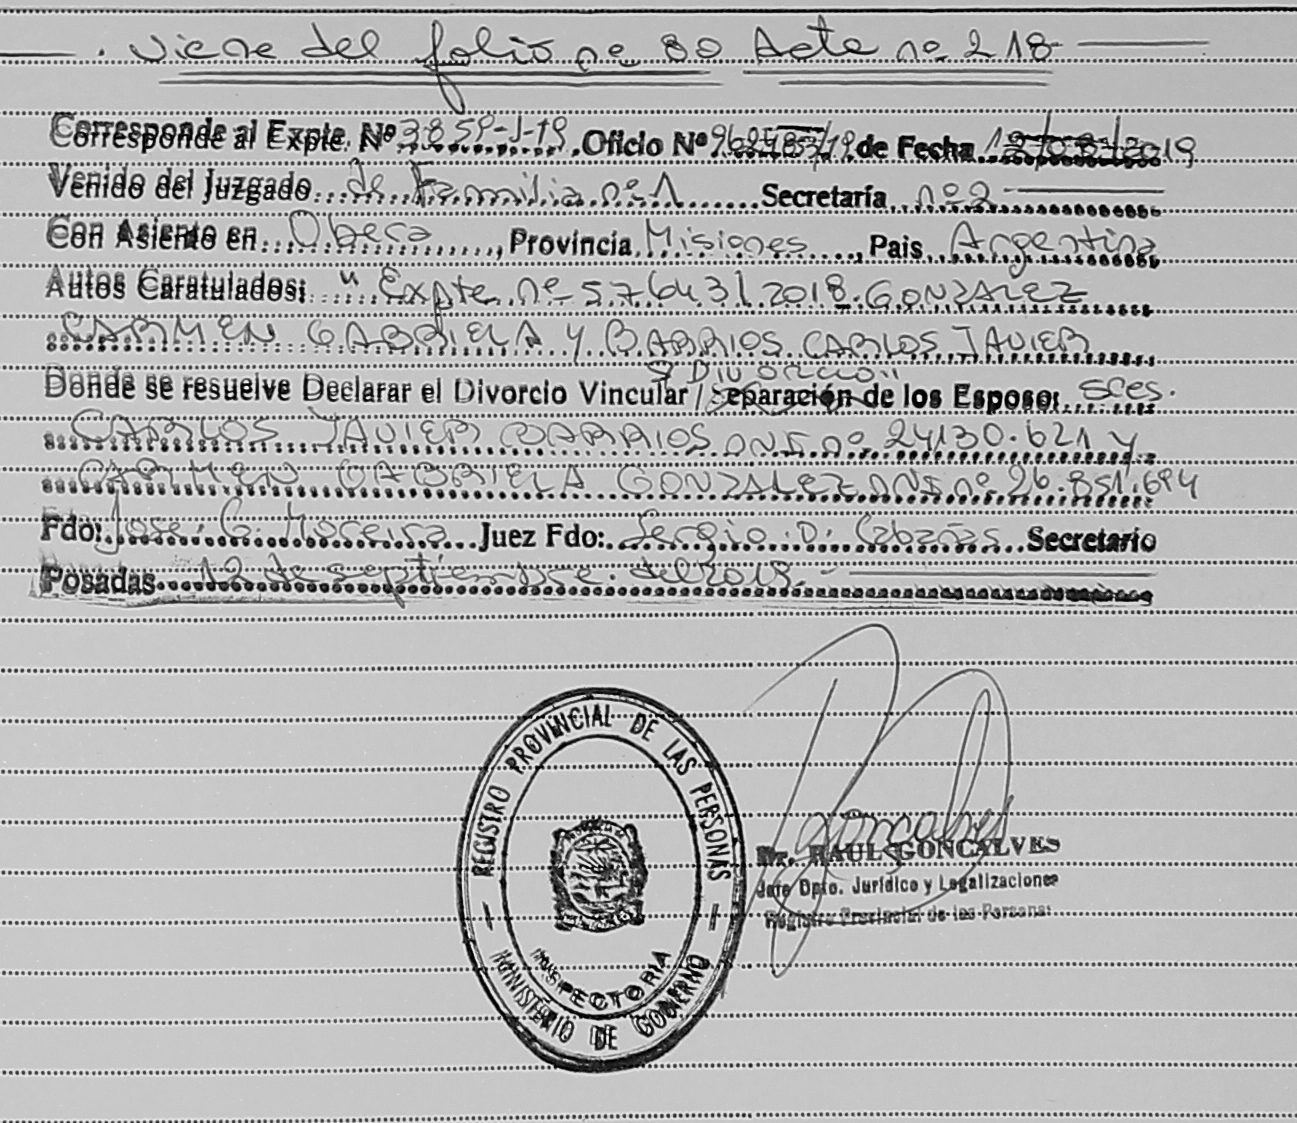 . Viene del folio nº 80 Acta nº 218
Corresponde al Expte. Nº 3859-J-19. Oficio Nº de Fecha 2019
Venido del Juzgado de Familia nº 1 Secretaría nº 2
Con Asiento en Oberá, Provincia Misiones, Pais Argentina
Autos Caratulados: "Expte. nº 57643/2018. GONZALEZ
CARMEN GABRIELA Y BARRIOS CARLOS JAVIER
S/DIVORCIO"
Donde se resuelve Declarar el Divorcio Vincular / Separación de los Esposo: sces.
CARLOS JAVIER BARRIOS DNI nº 24130.621 y
CARMEN GABRIELA GONZALEZ DNI nº 26.851.694
Fdo: Jose G. Moreira Juez Fdo: Sergio D. Cabañas Secretario
Posadas 12 de septiembre del 2019.
REGISTRO PROVINCIAL DE LAS PERSONAS
INSPECTORIA
MINISTERIO DE GOBIERNO
Dr. RAUL GONCALVES
Jefe Dpto. Jurídico y Legalizaciones
Registro Provincial de las Personas